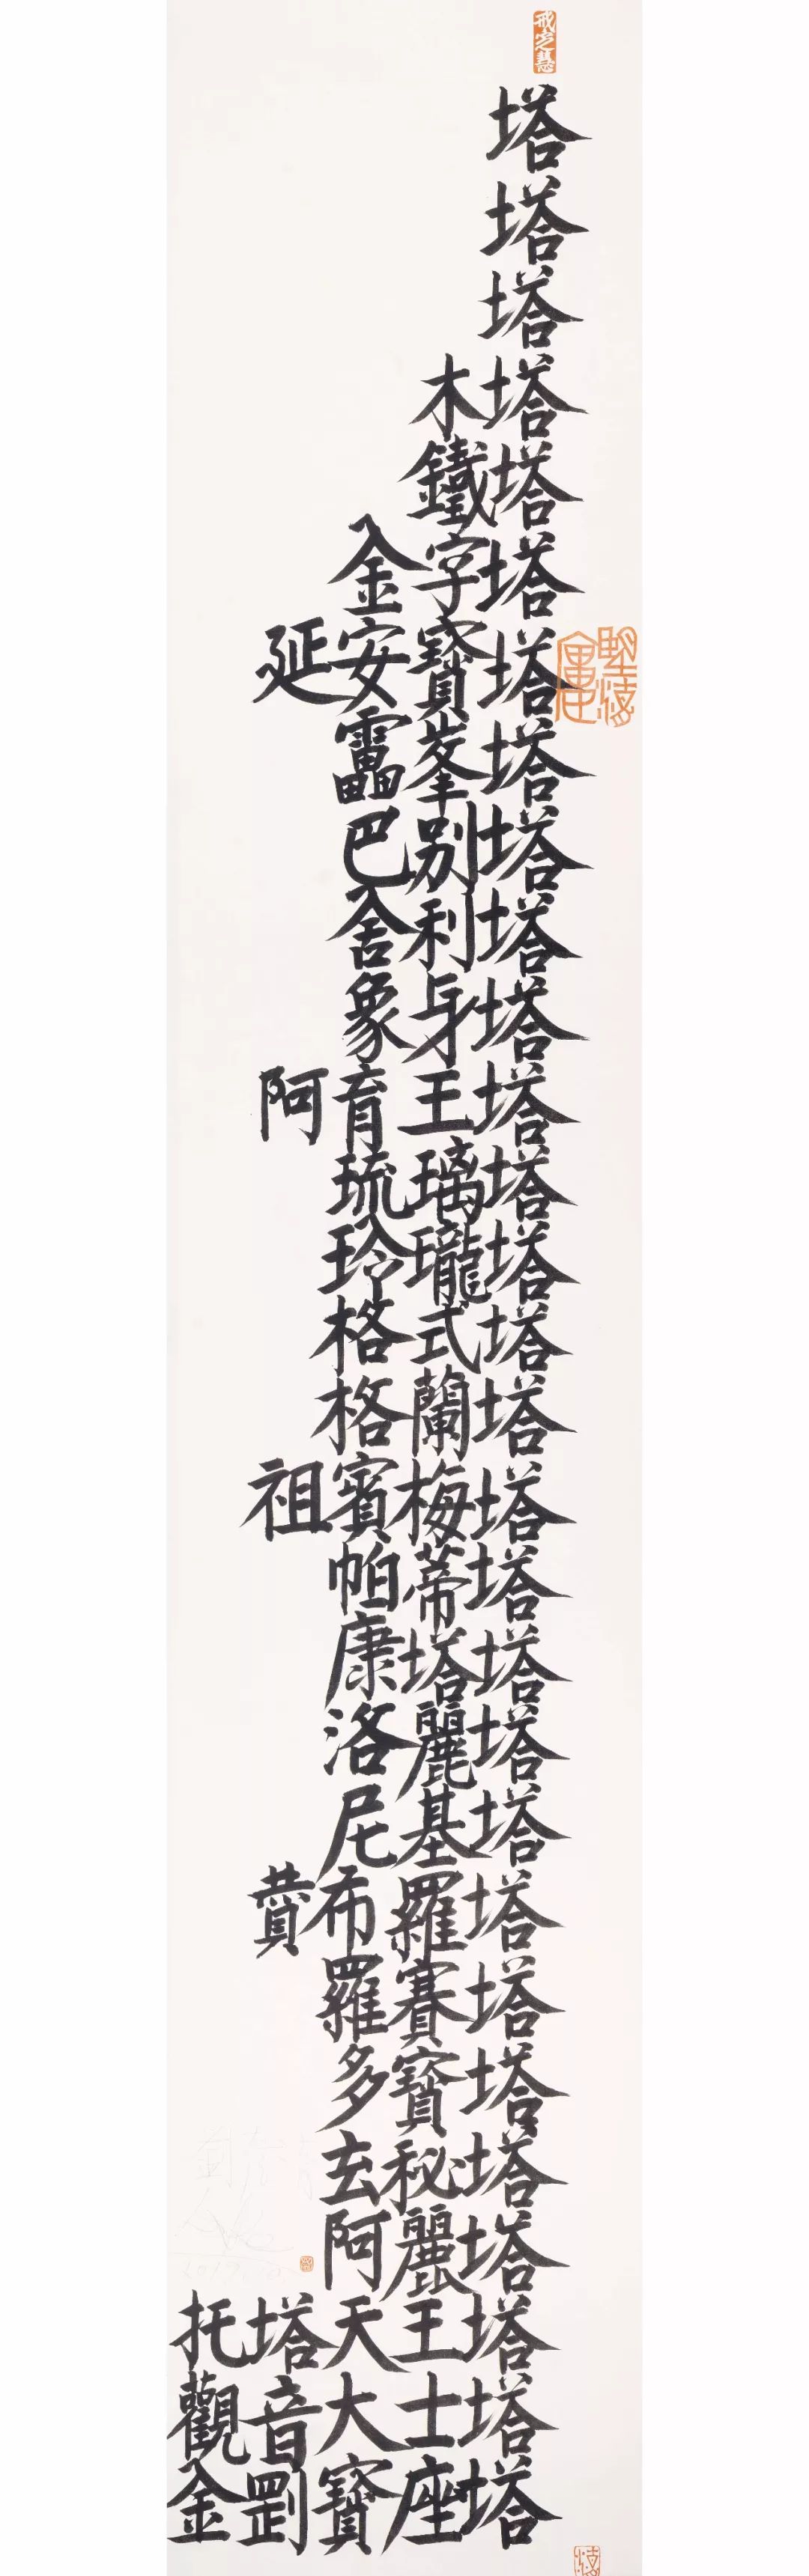 戒定慧
塔
塔
塔
木塔
鐵塔
金字塔
延安寶塔
靁峯塔
巴別塔
舍利塔
象身塔
阿育王塔
琉璃塔
玲瓏塔
格式塔
格蘭塔
祖賓梅塔
帕蒂塔
康塔塔
洛麗塔
尼基塔
贊布羅塔
羅賽塔
多寶塔
玄秘塔
阿麗塔
托塔天王塔
觀音大士塔
金剛寶座塔